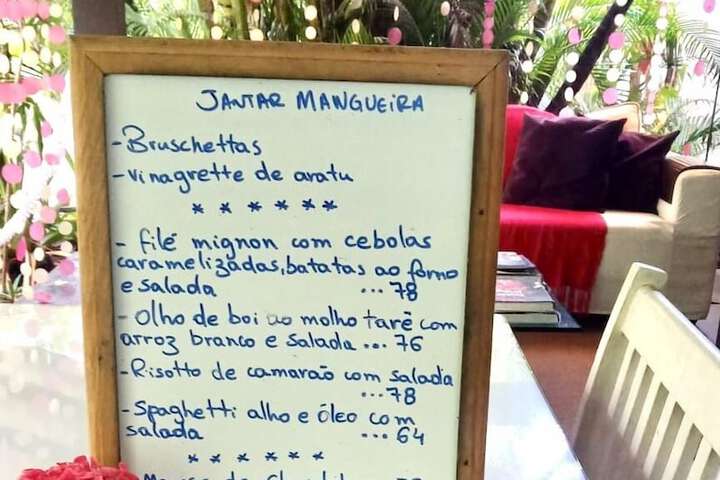 JANTAR MANGUEIRA
- Bruschettas
- vinagrette de aratu
* * * * * *
- filé mignon com cebolas
caramelizadas, batatas ao forno
e salada ... 78
- Olho de boi ao molho tarê com
arroz branco e salada ... 76
- Risotto de camarão com salada
... 78
- Spaghetti alho e óleo com
salada ... 64
* * * * * *